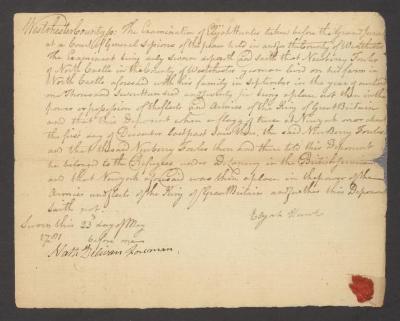 Westchester County ss. The Examination of Elijah Hunter taken before the Grand Jurors
at a Court of General Sessions of the peace held in and for the County of Westchester
The Examinant being duly sworn deposeth and saith that Newberry Fowler
of North Castle in the County of Westchester yeoman lived on his farm in
North Castle aforesaid with his family in September in the year of our Lord
one Thousand Seven Hundred and Seventy being a place but then in the
power or possession of the fleets and Armies of the King of Great Britain
and that this Deponent when a flagg of truce at Newyork on or about
the first day of December last past saw there, the said Newberry Fowler
and that the said Newberry Fowler then and there told this Deponent
he belonged to the Refugees under Delancey in the British
and that Newyork aforesaid was then a place in the power of the
Armies and fleets of the King of Great Britain and further this Deponent
saith not
Elijah Hunter
Sworn this 23d day of May
1781 before me
Nathl Delivan foreman.